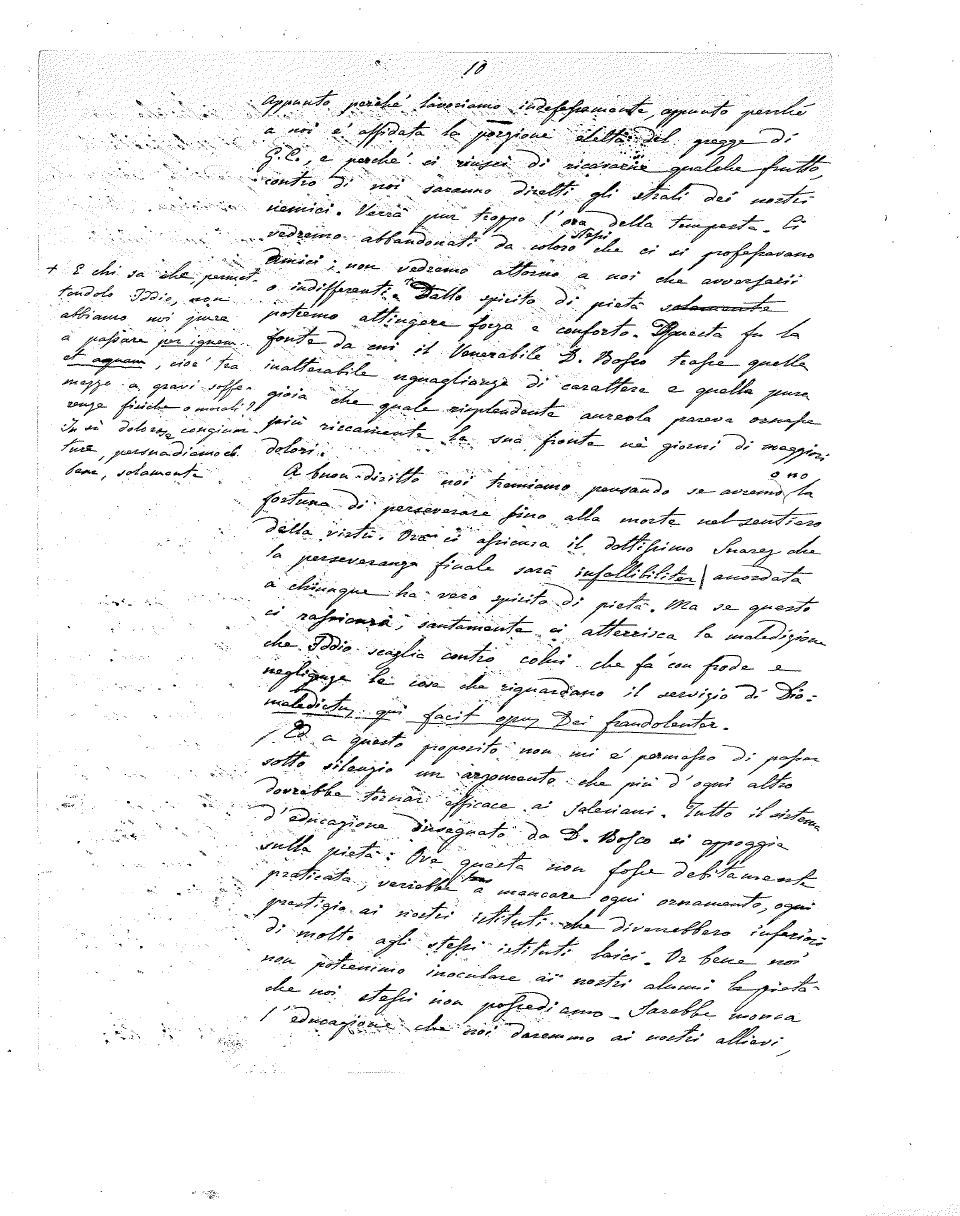 10
appunto perché lavoriamo indefessamente, appunto perché
a noi é affidata la porzione eletta del gregge di
G.C., e perché ci riuscì di ricavarne qualche frutto,
contro di noi saranno diretti gli strali dei nostri
nemici. Verrà pur troppo l'ora della tempesta. Ci
vedremo abbandonati da coloro stessi che ci si professavano
amici; non vedremo attorno a noi che avversarii
o indifferenti. + Dallo spirito di pietà solamente
potremo attingere forza e conforto. Questa fu la
fonte da cui il Venerabile D. Bosco trasse quella
inalterabile uguaglianza di carattere e quella pura
gioia che quale risplendente aureola pareva ornasse
più riccamente la sua fronte nè giorni di maggiori
dolori.
+ E chi sa che, permet-
tendolo Iddio, non
abbiamo noi pure
a passare per ignem
et aquam, cioè tra
mezzo a gravi soffe-
renze fisiche o morali?
In sì dolorose congiun-
ture, persuadiamoci
bene, solamente
A buon diritto noi tremiamo pensando se avremo o no la
fortuna di perseverare fino alla morte nel sentiero
della virtù. Ora ci assicura il dottissimo Suarez che
la perseveranza finale sarà infallibiliter accordata
a chiunque ha vero spirito di pietà. Ma se questo
ci rassicura, santamente ci atterrisca la maledizione
che Iddio scaglia contro colui che fà con frode e
negligenza le cose che riguardano il servizio di Dio-
maledictus qui facit opus Dei fraudolenter.
Ed a questo proposito non mi é permesso di passar
sotto silenzio un argomento che più d'ogni altro
dovrebbe tornar efficace ai Salesiani. Tutto il sistema
d'educazione insegnato da D. Bosco si appoggia
sulla pietà. Ove questa non fosse debitamente
praticata, verrebbe a mancare ogni ornamento, ogni
prestigio ai nostri istituti che diverrebbero inferiori
di molto agli stessi istituti laici. Or bene noi
non potremmo inoculare ai nostri alunni la pietà
che noi stessi non possediamo. Sarebbe monca
l'educazione che noi daremmo ai nostri allievi,